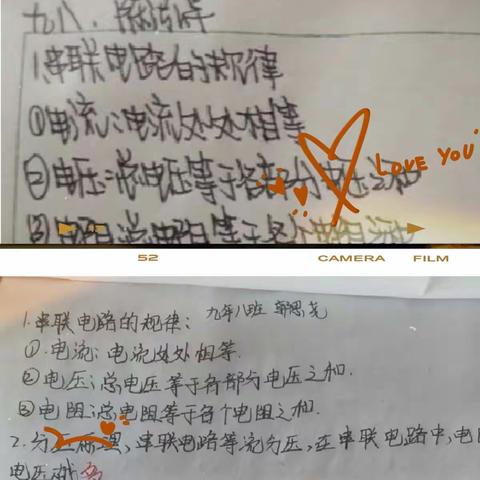 九八
1.串联电路的规律
①电流:电流处处相等
②电压:总电压等于各部分电压之和
③电阻:总电阻等于各个电阻之和
LOVE YOU
52 CAMERA FILM
1.串联电路的规律: 九年八班
①.电流:电流处处相等.
②电压:总电压等于各部分电压之和.
③电阻:总电阻等于各个电阻之和.
2.分压原理、串联电路等流分压,在串联电路中,电
电压